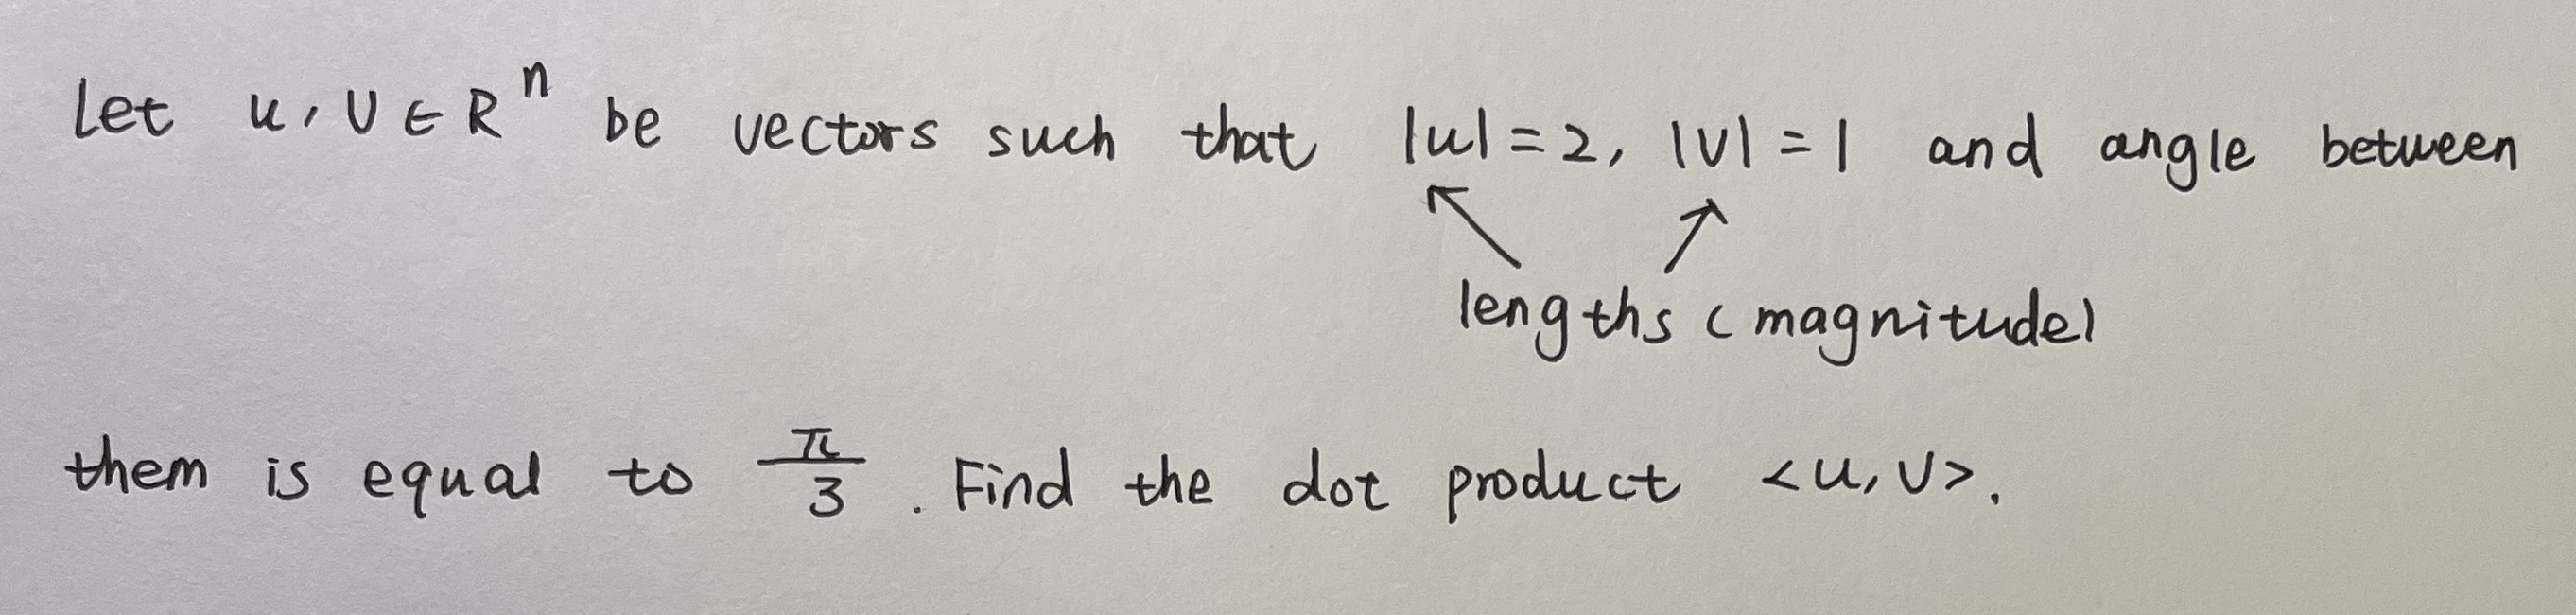 Let u, v ∈ R^n be vectors such that |u| = 2, |v| = 1 and angle between
lengths (magnitude)
them is equal to π/3. Find the dot product <u, v>.